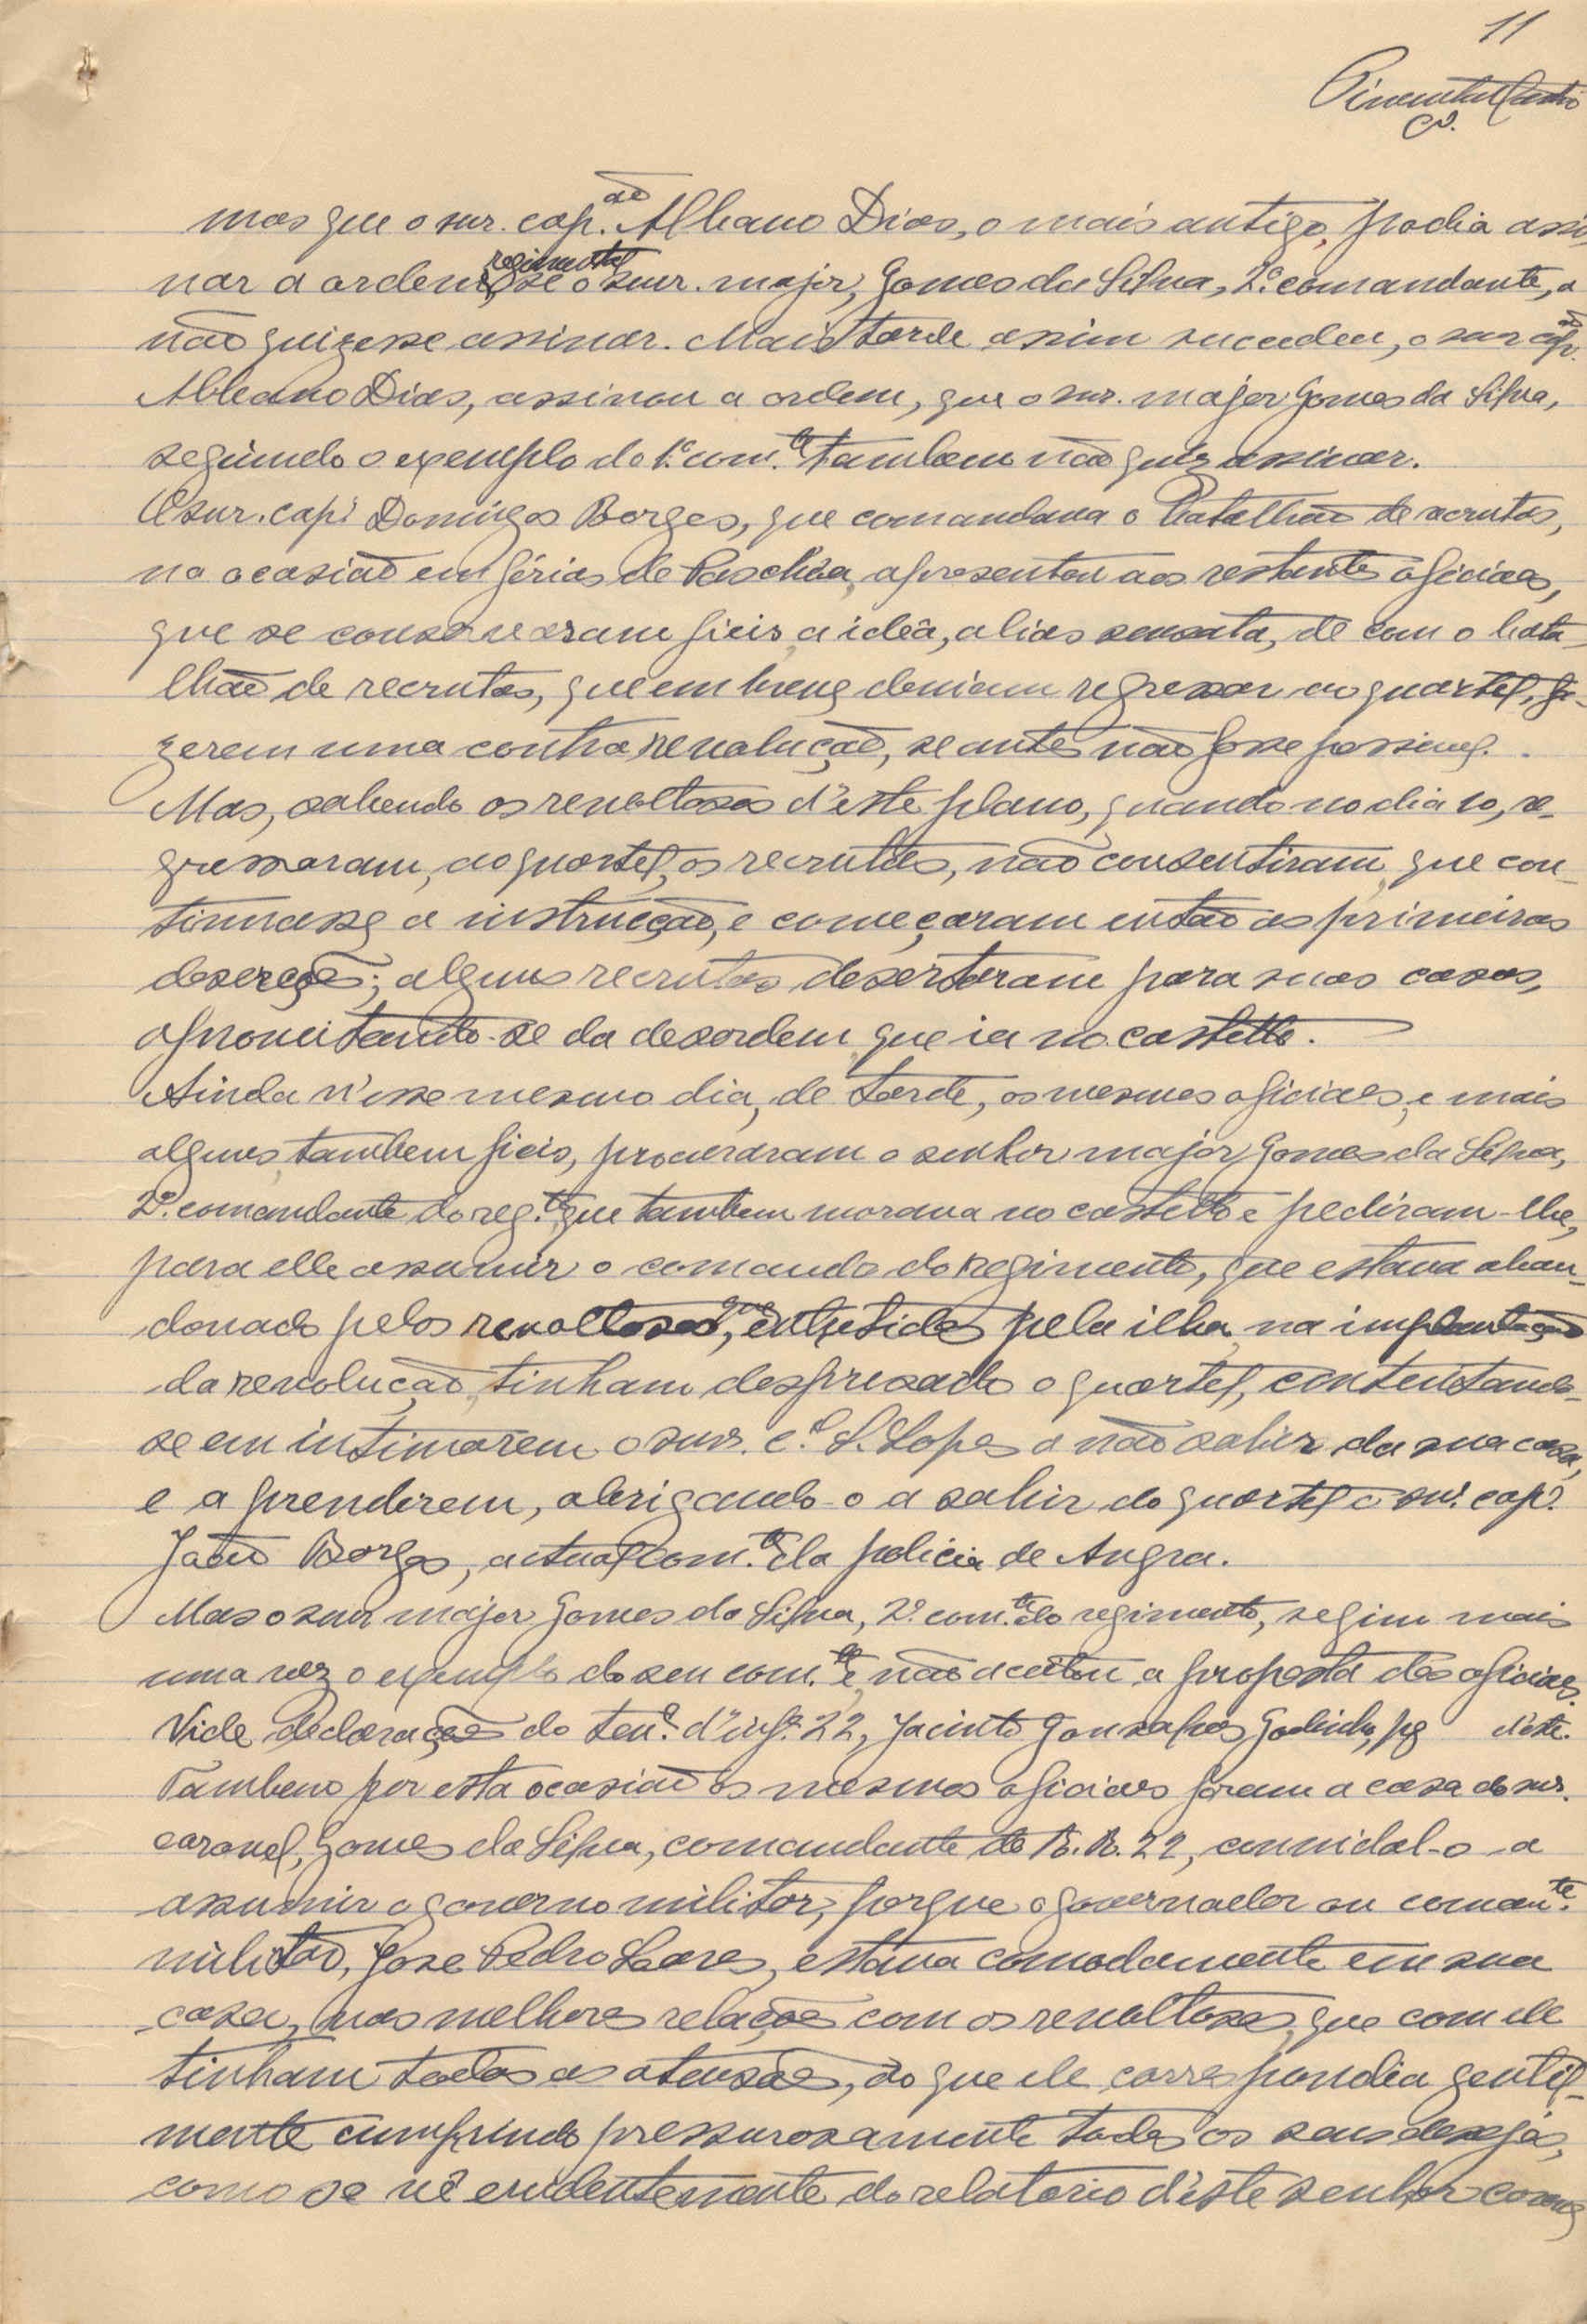 11
Pimentel Castro
mas que o snr. cap.ão Albano Dias, o mais antigo, podia assi-
nar a ordem regimental se o snr. major, Gomes da Silva, 2º comandante, a
não quizesse assinar. Mais tarde assim sucedeu, o snr cap.ão
Albano Dias, assinou a ordem, que o snr. major Gomes da Silva,
seguindo o exemplo do 1º com.te tambem não quiz assinar.
O snr. cap.º Domingos Borges, que comandava o Batalhão de recrutas,
na ocasião em férias de Paschôa, apresentou aos restantes oficiaes,
que se conservaram fieis, a ideâ, alias sensata, de com o bata-
lhão de recrutas, que em breve deviam regressar ao quartel, fa-
zerem uma contra revolução, se antes não fosse possivel.
Mas, sabendo os revoltosos d'este plano, quando no dia 10, re-
gressaram, ao quartel, os recrutas, não consentiram, que con-
tinuasse a instrucção, e começaram então as primeiras
deserções; alguns recrutas desertaram para suas casas,
aproveitando-se da desordem que ia no castello.
Ainda n'esse mesmo dia, de tarde, os mesmos oficiaes, e mais
alguns tambem fieis, procuraram o senhor major Gomes da Silva,
2º comandante do reg.to, que tambem morava no castello e pediram-lhe,
para elle assumir o comando do regimento, que estava aban-
donado pelos revoltosos, que entretidos pela ilha, na implantação
da revolução, tinham despresado o quartel, contentando-
se em intimarem o snr. c.el S. Lopes a não sahir da sua casa,
e a prenderem, obrigando-o a sahir do quartel o snr. cap.º
João Borges, actual com.te da policia de Angra.
Mas o snr major Gomes da Silva, 2º com.te do regimento, seguiu mais
uma vez o exemplo do seu com.te e não aceitou a proposta dos oficiaes.
Vide declarações do ten.e d'inf.ª 22, Jacinto Gonsalves Godinho, pg d'este.
Tambem por esta ocasião os mesmos oficiaes foram a casa do snr.
coronel, Gomes da Silva, comandante do R. R. 22, convidal-o a
assumir o governo militar, porque o governador ou coman.te
militar, José Pedro Soares, estava comodamente em sua
casa, nas melhores relações com os revoltosos, que com ele
tinham todas as atensões, ao que ele correspondia gentil-
mente cumprindo pressurosamente todos os seus desejos,
como se vê evidentemente do relatorio d'este senhor coronel